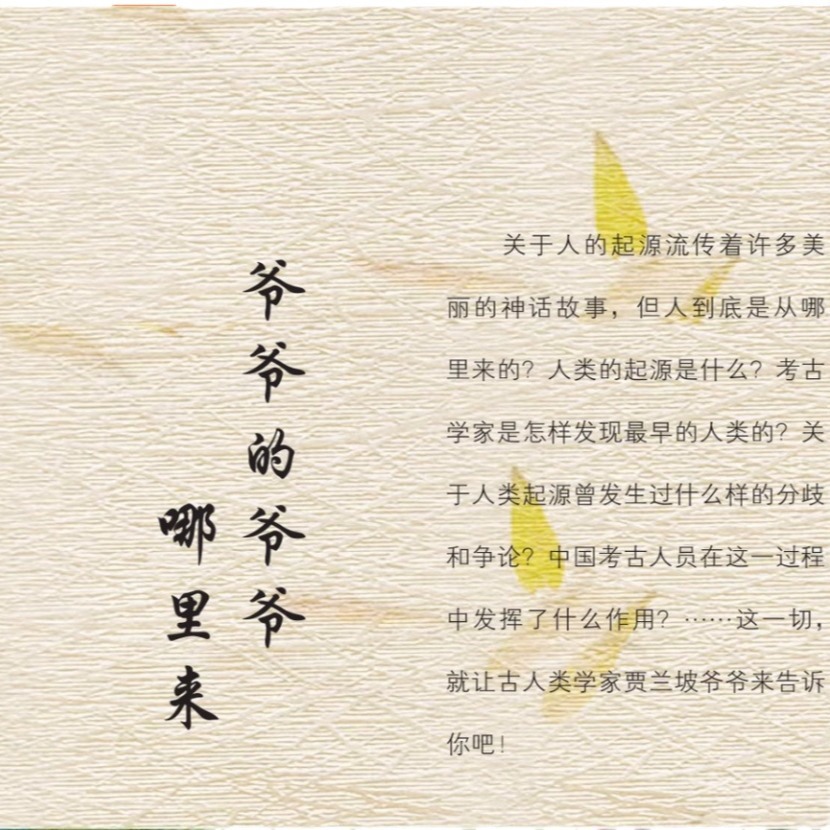 爷爷的爷爷
哪里来
关于人的起源流传着许多美
丽的神话故事，但人到底是从哪
里来的？人类的起源是什么？考古
学家是怎样发现最早的人类的？关
于人类起源曾发生过什么样的分歧
和争论？中国考古人员在这一过程
中发挥了什么作用？……这一切，
就让古人类学家贾兰坡爷爷来告诉
你吧！